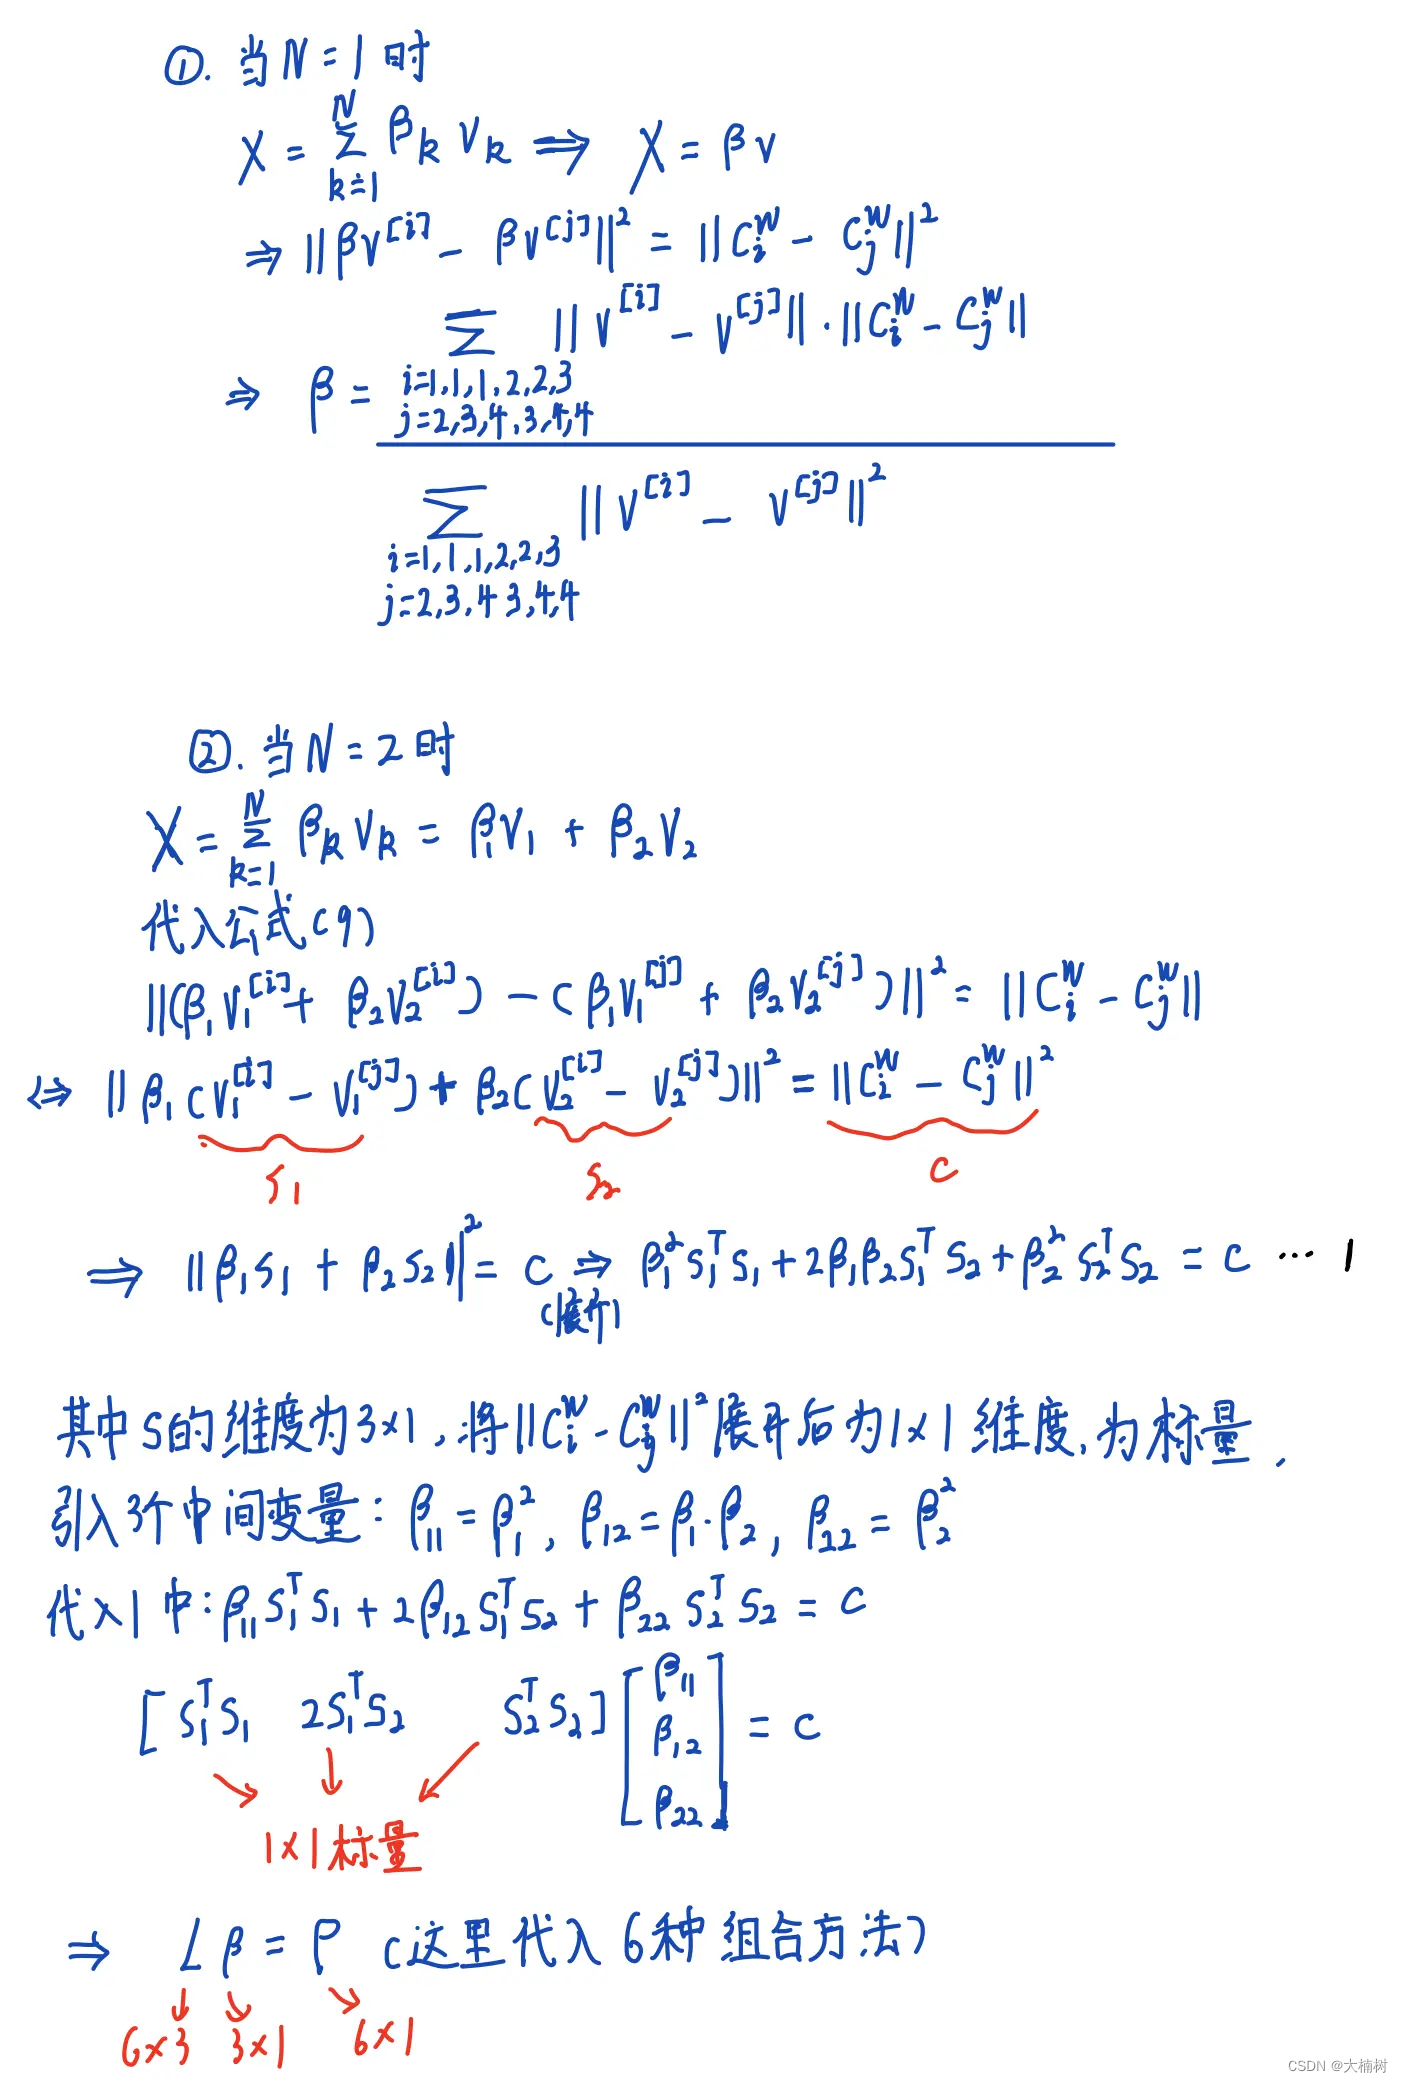 ①. 当 N = 1 时
X = \sum_{k=1}^{N} β_k v_k ⟹ X = β v
⇒ ||β v^{[i]} - β v^{[j]}||^2 = ||C_i^w - C_j^w||^2
⇒ β = \frac{\sum_{i=1,1,1,2,2,3 \ j=2,3,4,3,4,4} ||v^{[i]} - v^{[j]}|| · ||C_i^w - C_j^w||}{\sum_{i=1,1,1,2,2,3 \ j=2,3,4 3,4,4} ||v^{[i]} - v^{[j]}||^2}
②. 当 N = 2 时
X = \sum_{k=1}^{N} β_k v_k = β_1 v_1 + β_2 v_2
代入公式(9)
||(β_1 v_1^{[i]} + β_2 v_2^{[i]}) - (β_1 v_1^{[j]} + β_2 v_2^{[j]})||^2 = ||C_i^w - C_j^w||
<⇒ ||β_1 (v_1^{[i]} - v_1^{[j]}) + β_2 (v_2^{[i]} - v_2^{[j]})||^2 = ||C_i^w - C_j^w||^2
S_1 S_2 c
⟹ ||β_1 s_1 + β_2 s_2||^2 = c ⇒ β_1^2 s_1^T s_1 + 2β_1 β_2 s_1^T s_2 + β_2^2 s_2^T s_2 = c ... 1
(展开)
其中 s 的维度为 3×1, 将 ||C_i^w - C_j^w||^2 展开后为 1×1 维度, 为标量.
引入3个中间变量: β_{11} = β_1^2, β_{12} = β_1·β_2, β_{22} = β_2^2
代入1中: β_{11} s_1^T s_1 + 2β_{12} s_1^T s_2 + β_{22} s_2^T s_2 = c
[s_1^T s_1 2s_1^T s_2 s_2^T s_2] [β_{11} β_{12} β_{22}] = c
1×1标量
⇒ L β = ρ (这里代入6种组合方法)
6×3 3×1 6×1
CSDN @大楠树